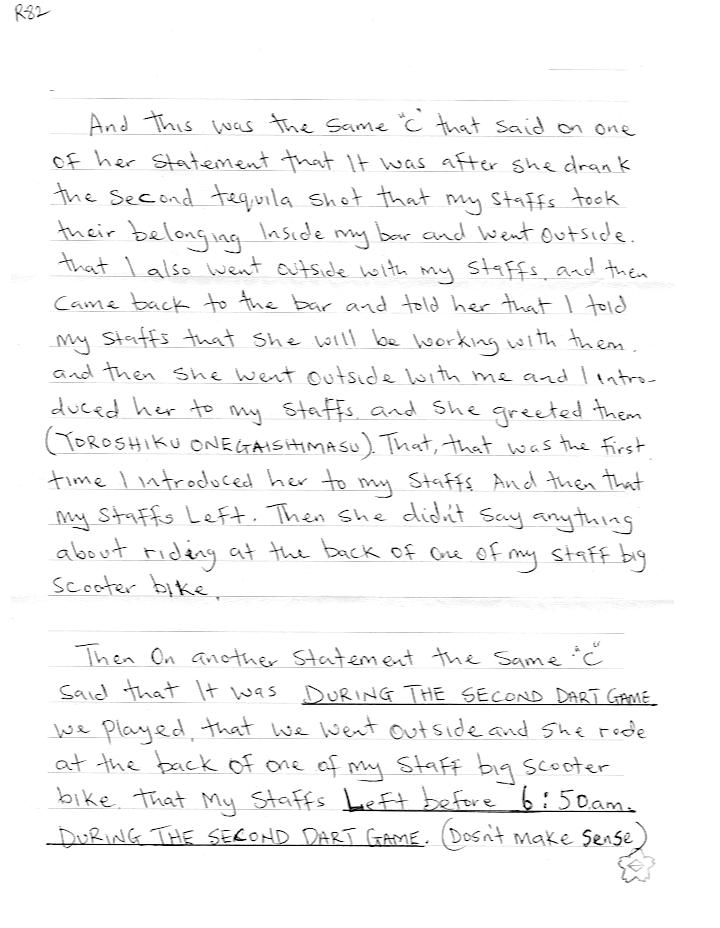 R82
And this was the same "C" that said on one
of her statement that It was after she drank
the second tequila shot that my staffs took
their belonging Inside my bar and went outside.
that I also went outside with my staffs, and then
came back to the bar and told her that I told
my staffs that she will be working with them.
and then she went outside with me and I intro-
duced her to my staffs, and she greeted them
(YOROSHIKU ONEGAISHIMASU). That, that was the first
time I introduced her to my staffs And then that
my staffs Left. Then she didn't say anything
about riding at the back of one of my staff big
scooter bike.
Then On another statement the same "C"
said that It was DURING THE SECOND DART GAME
we played, that we went outside and she rode
at the back of one of my staff big scooter
bike. that My staffs Left before 6:50am.
DURING THE SECOND DART GAME. (Dosn't make sense)